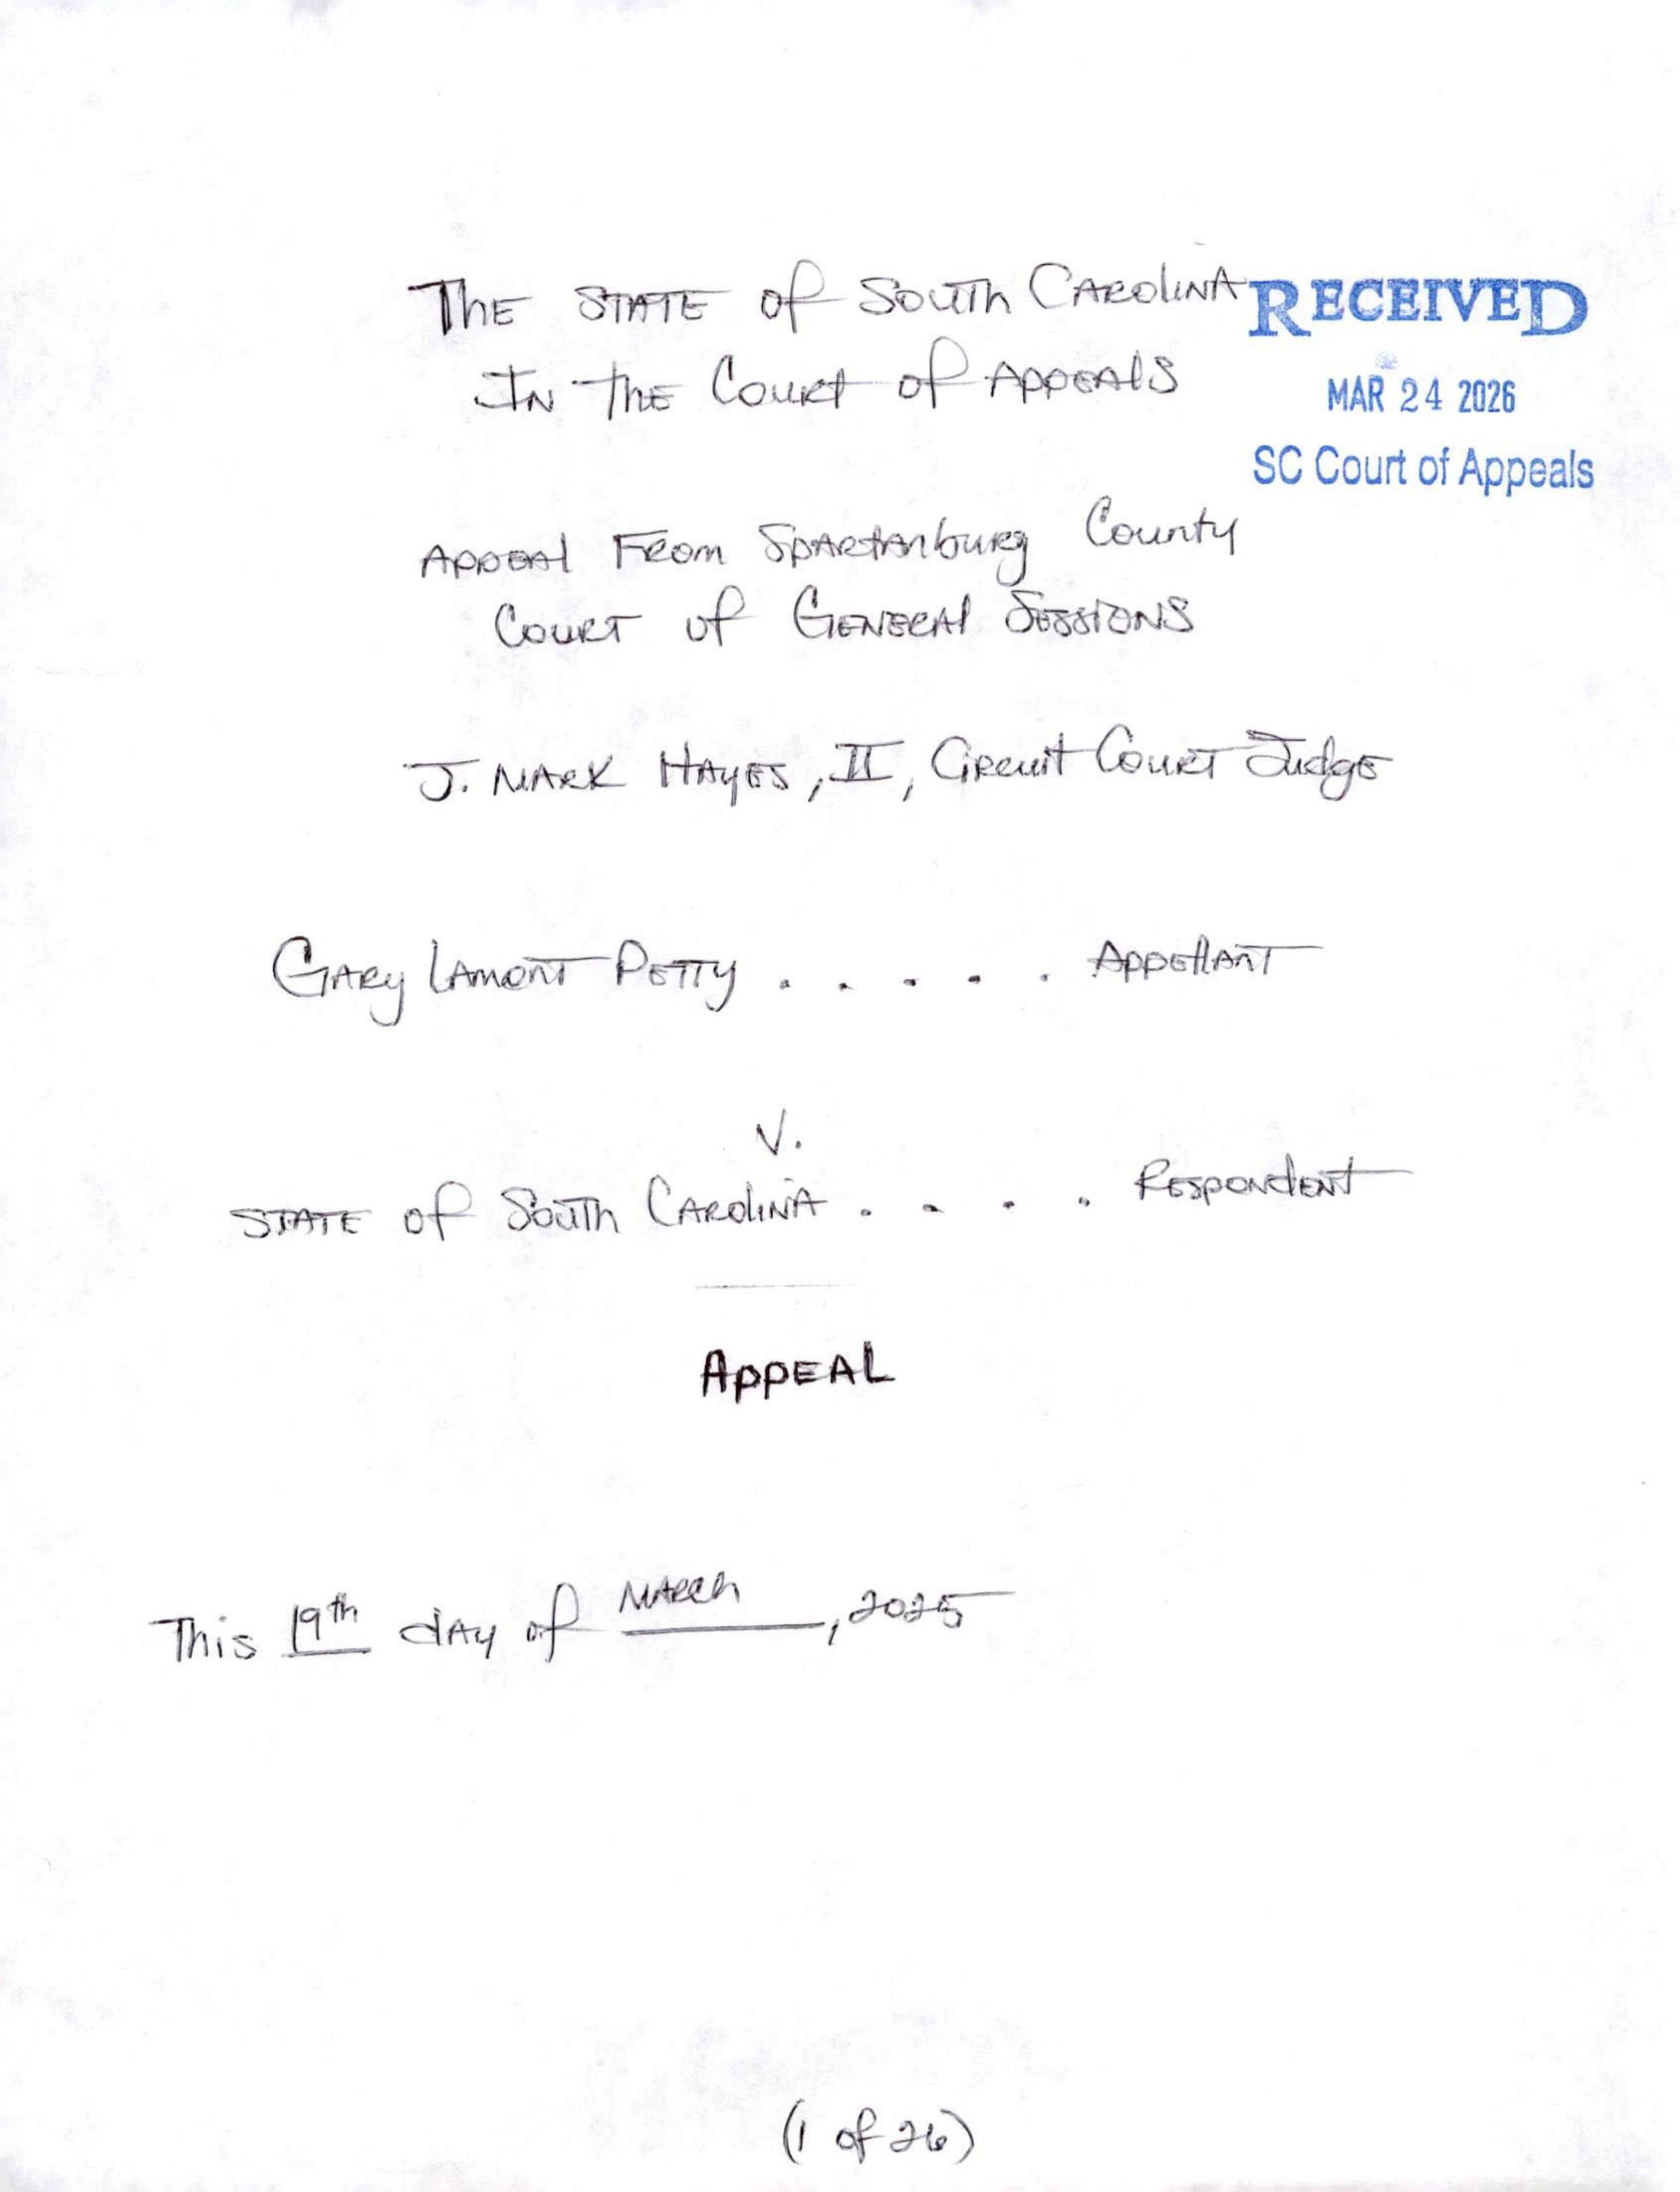 The State of South Carolina
In the Court of Appeals
RECEIVED
MAR 24 2026
SC Court of Appeals
Appeal From Spartanburg County
Court of General Sessions
J. Mark Hayes, II, Circuit Court Judge
Gary Lamont Petty . . . . . Appellant
V.
State of South Carolina . . . . Respondent
APPEAL
This 19th day of March, 2025
(1 of 26)